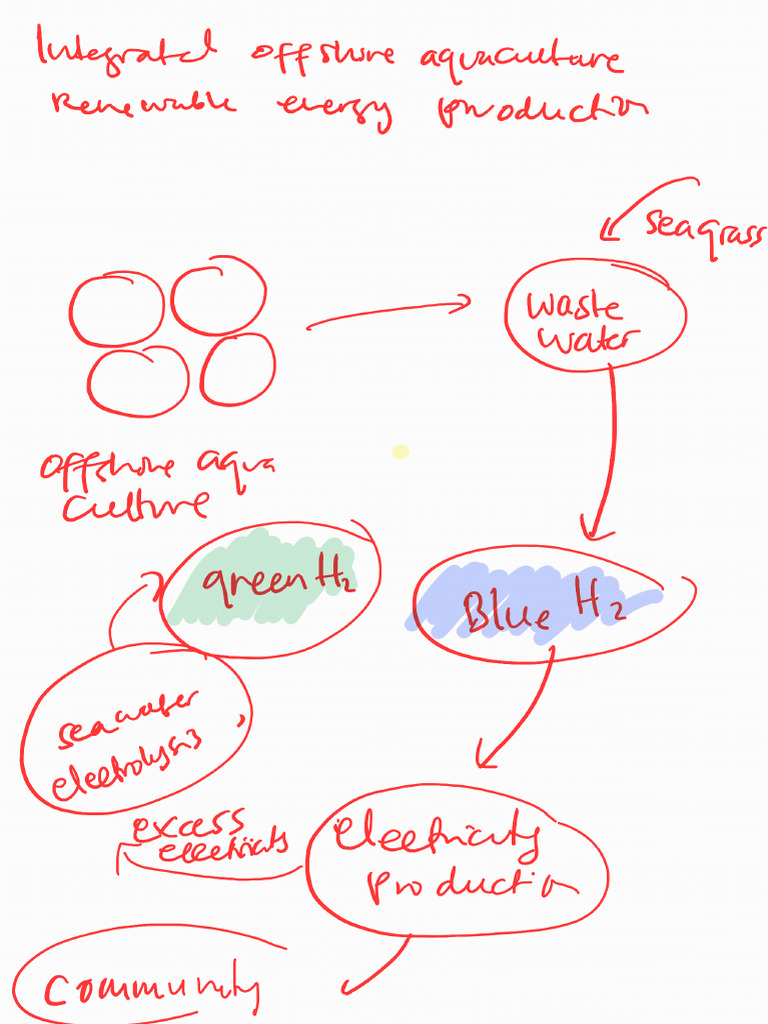 Integrated offshore aquaculture
renewable energy production
seagrass
waste
water
offshore aqua
culture
green H₂
Blue H₂
seawater
electrolysis
excess
electricity
electricity
production
community